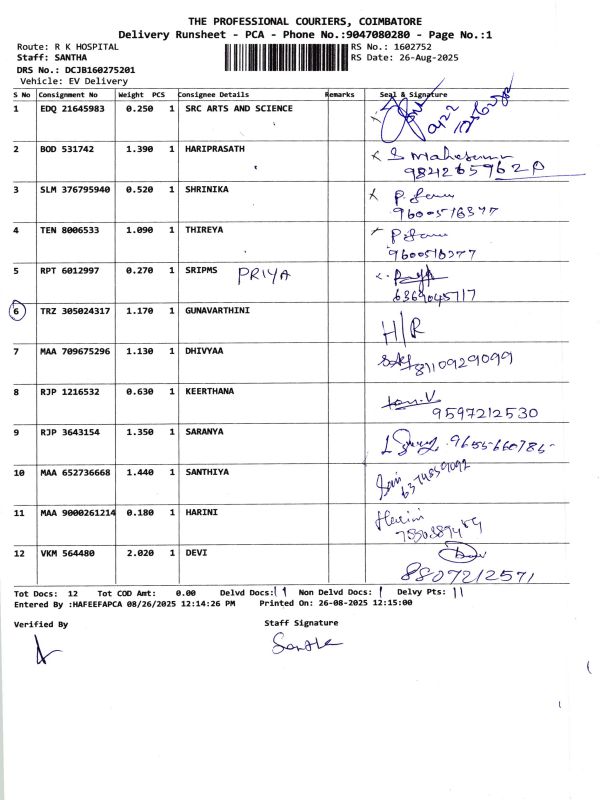 THE PROFESSIONAL COURIERS, COIMBATORE
Delivery Runsheet - PCA - Phone No.:9047080280 - Page No.:1
Route: R K HOSPITAL RS No.: 1602752
Staff: SANTHA RS Date: 26-Aug-2025
DRS No.: DCJB160275201
Vehicle: EV Delivery
S No Consignment No Weight PCS Consignee Details Remarks Seal & Signature
1 EDQ 21645983 0.250 1 SRC ARTS AND SCIENCE
2 BOD 531742 1.390 1 HARIPRASATH
9842659620
3 SLM 376795940 0.520 1 SHRINIKA
9600516377
4 TEN 8006533 1.090 1 THIREYA
9600516377
5 RPT 6012997 0.270 1 SRIPMS PRIYA Priya
6369045717
6 TRZ 305024317 1.170 1 GUNAVARTHINI H/R
7 MAA 709675296 1.130 1 DHIVYAA 8110929099
8 RJP 1216532 0.630 1 KEERTHANA
9597212530
9 RJP 3643154 1.350 1 SARANYA 9655660785
10 MAA 652736668 1.440 1 SANTHIYA
6374859092
11 MAA 9000261214 0.180 1 HARINI Harini
12 VKM 564480 2.020 1 DEVI
8807212571
Tot Docs: 12 Tot COD Amt: 0.00 Delvd Docs: 11 Non Delvd Docs: 1 Delvy Pts: 11
Entered By :HAFEEFAPCA 08/26/2025 12:14:26 PM Printed On: 26-08-2025 12:15:00
Verified By Staff Signature
Santha